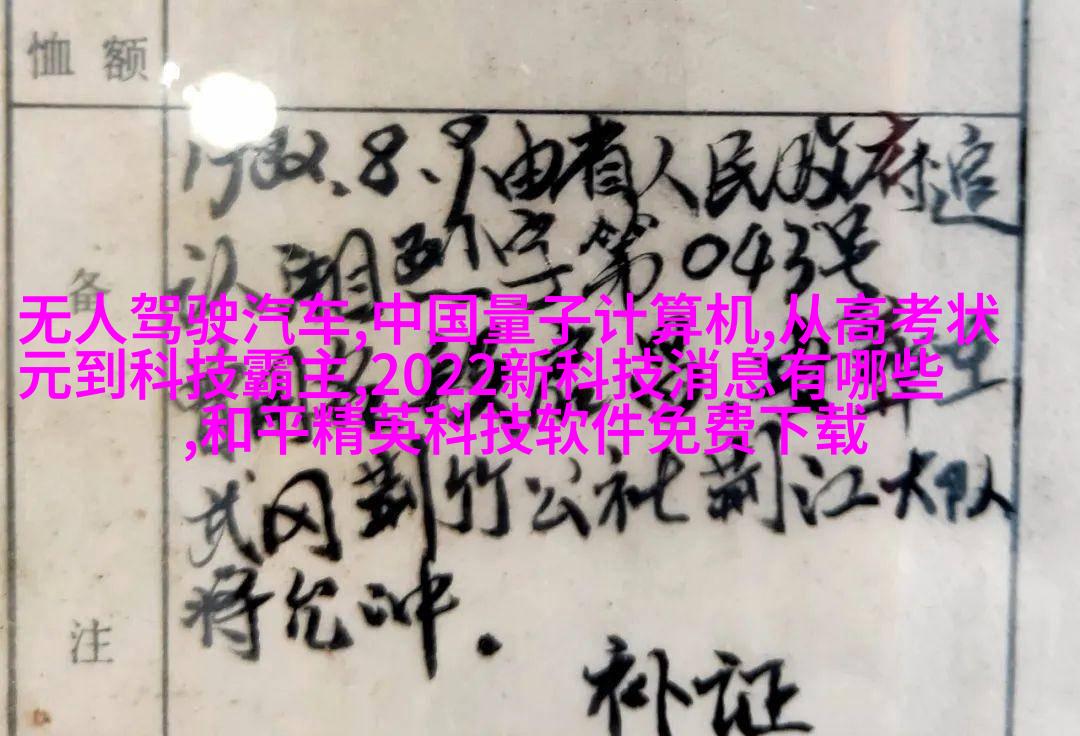 恤额
1982.8.9由省人民政府追
认湘烈字第043号
备
无人驾驶汽车,中国量子计算机,从高考状
元到科技霸主,2022新科技消息有哪些
,和平精英科技软件免费下载
武冈荆竹公社荆江大队
蒋允冲.
注
补证